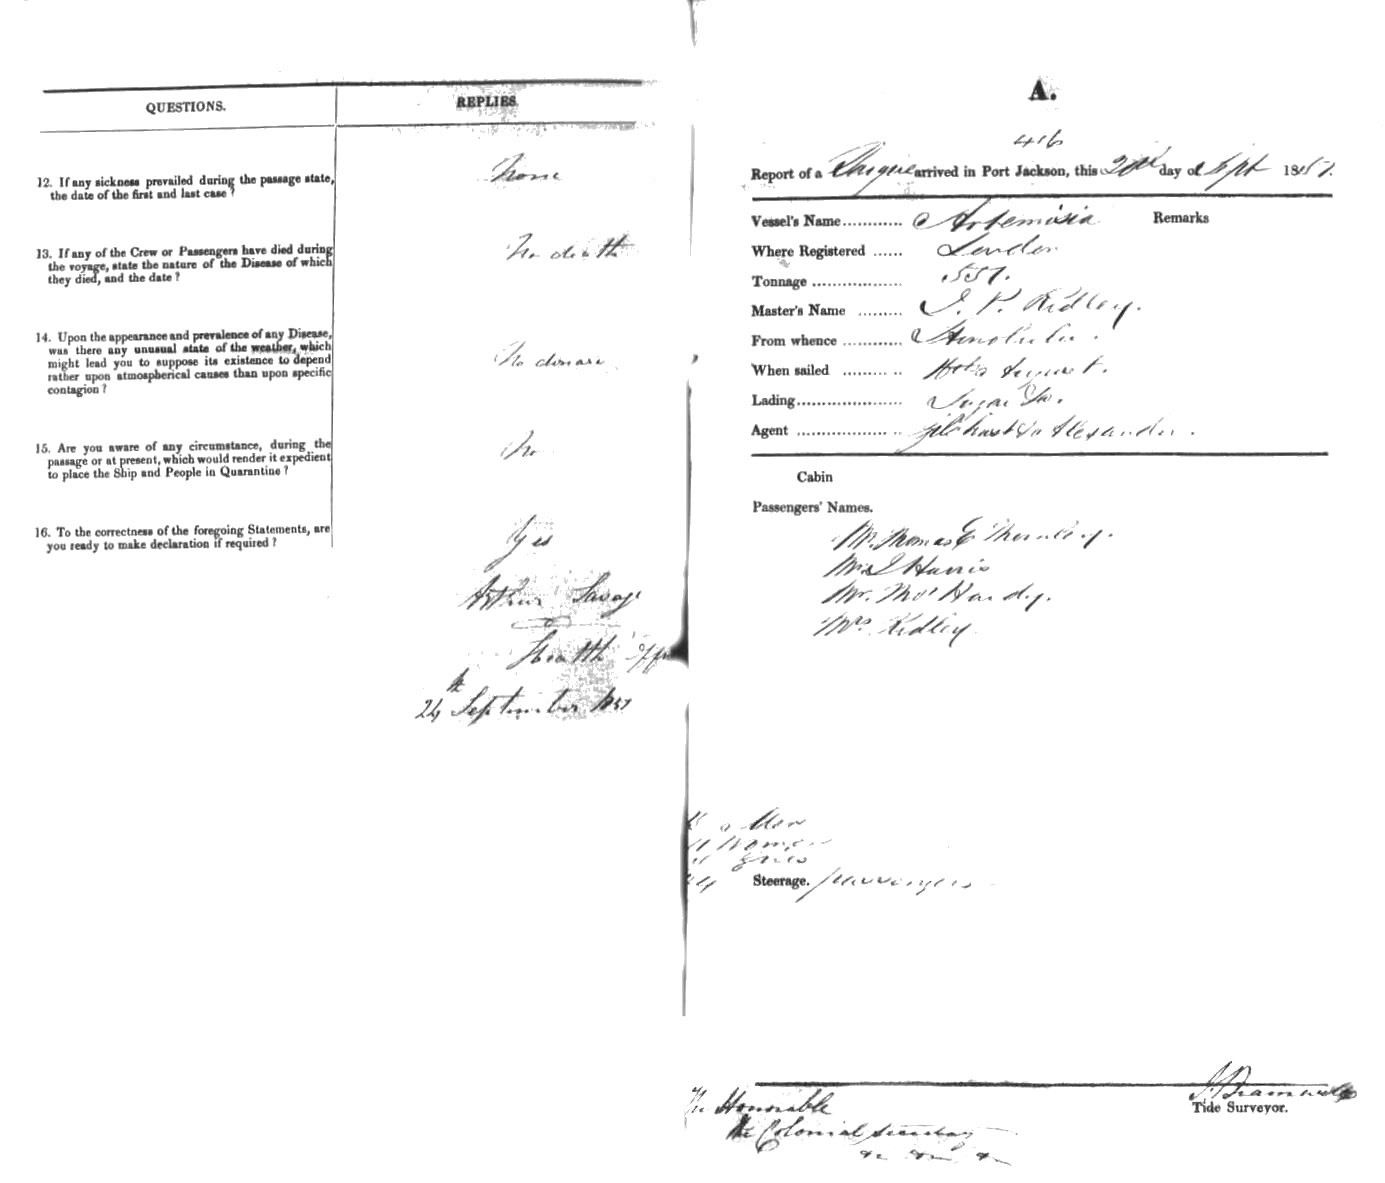 QUESTIONS.
REPLIES
12. If any sickness prevailed during the passage state,
the date of the first and last case?
None
13. If any of the Crew or Passengers have died during
the voyage, state the nature of the Disease of which
they died, and the date?
No death
14. Upon the appearance and prevalence of any Disease,
was there any unusual state of the weather, which
might lead you to suppose its existence to depend
rather upon atmospherical causes than upon specific
contagion?
No disease
15. Are you aware of any circumstance, during the
passage or at present, which would render it expedient
to place the Ship and People in Quarantine?
No
16. To the correctness of the foregoing Statements, are
you ready to make declaration if required?
Yes
Arthur Savage
Health
24th September 1851
A.
416
Report of a Barque arrived in Port Jackson, this day of Sept 1851.
Vessel's Name........... Artemisia Remarks
Where Registered ...... London
Tonnage .................. 557.
Master's Name ......... J. P. Ridley.
From whence ............ Honolulu.
When sailed ......... .. August.
Lading..................... Sugar
Agent ................... .. Gilchrist & Alexander.
Cabin
Passengers' Names.
Mr. Thomas E Thornley.
Harris
Mr. Thos Hardy.
Mrs Ridley
Men
Women
Steerage. passengers
J. Bramwell
Tide Surveyor.
The Honorable
the Colonial Secretary